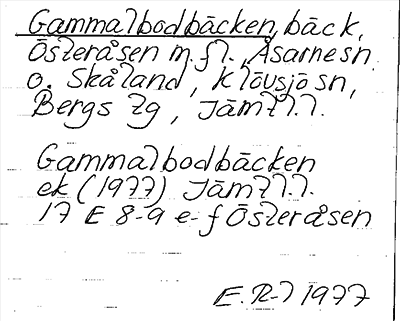 Gammalbodbäcken, bäck,
Österåsen m.fl., Åsarne sn
o. Skåland, Klövsjö sn,
Bergs tg, Jämtl.l.
Gammalbodbäcken
ek (1977) Jämtl.l.
17 E 8-9 e-f Österåsen
E.R-l 1977